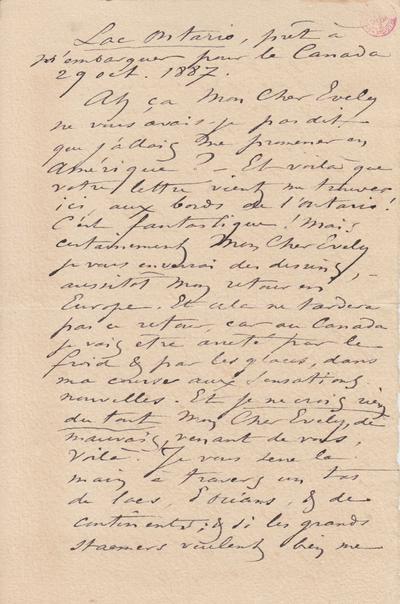 Lac Ontario, prêt à
m'embarquer pour le Canada
29 oct. 1887.
Ah ça Mon Cher Evely
ne vous avais-je pas dit
que j'allais me promener en
Amérique? – Et voilà que
votre lettre vient me trouver
ici aux bords de l'Ontario!
C'est fantastique! Mais
certainement Mon Cher Evely
je vous enverrai des dessins,
aussitôt mon retour en
Europe. Et cela ne tardera
pas ce retour, car au Canada
je vais être arrêté par le
froid & par les glaces, dans
ma course aux sensations
nouvelles. Et je ne crois rien
du tout Mon Cher Evely, de
mauvais, venant de vous,
voilà. Je vous serre la
main à travers un tas
de lacs, & de
continents; & si les grands
steamers veulent bien me